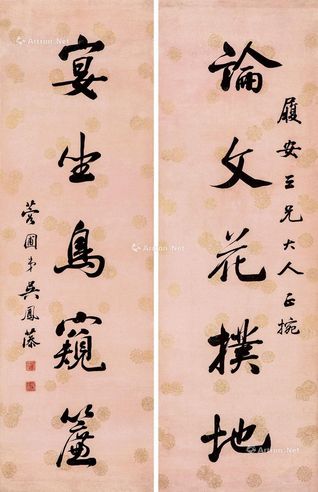 履安三兄大人正捥
論文花撲地
宴坐鳥窺簾
蓉圃弟吳鳳藻
Artron.Net
Artron.Net
Artron.Net
Artron.Net
Artron.Net
Artron.Net